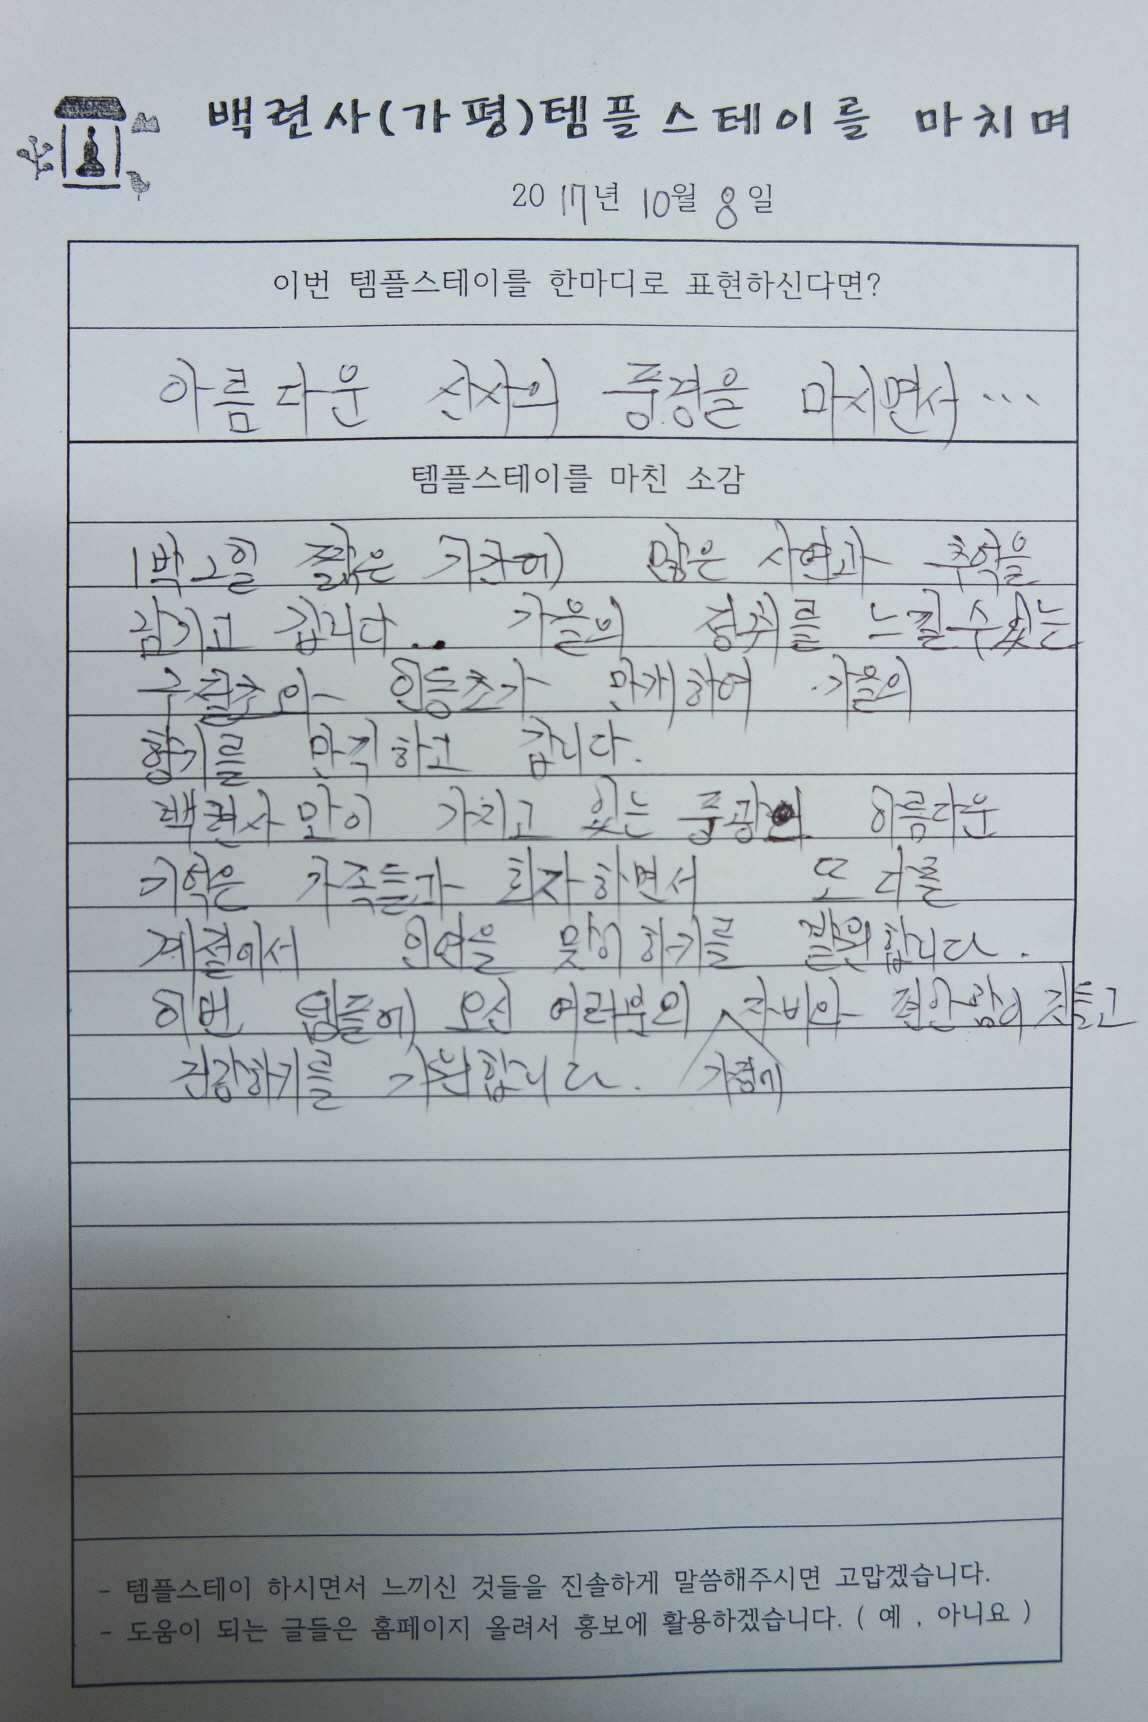 백련사(가평)템플스테이를 마치며
2017년 10월 8일
이번 템플스테이를 한마디로 표현하신다면?
아름다운 산사의 풍경을 마시면서...
템플스테이를 마친 소감
1박2일 짧은 기간에 많은 사연과 추억을
남기고 갑니다... 가을의 정취를 느낄수있는
구절초와 힌등초가 만개하여 가을의
향기를 만끽하고 갑니다.
백련사 만이 가지고 있는 풍광의 아름다운
기억은 가족들과 회자하면서 또 다를
계절에서 인연을 맞이하기를 발원합니다.
이번 템플에 오신 여러분의 자비와 편안함이 깃들고
가정에
건강하기를 기원합니다.
- 템플스테이 하시면서 느끼신 것들을 진솔하게 말씀해주시면 고맙겠습니다.
- 도움이 되는 글들은 홈페이지 올려서 홍보에 활용하겠습니다. ( 예 , 아니요 )